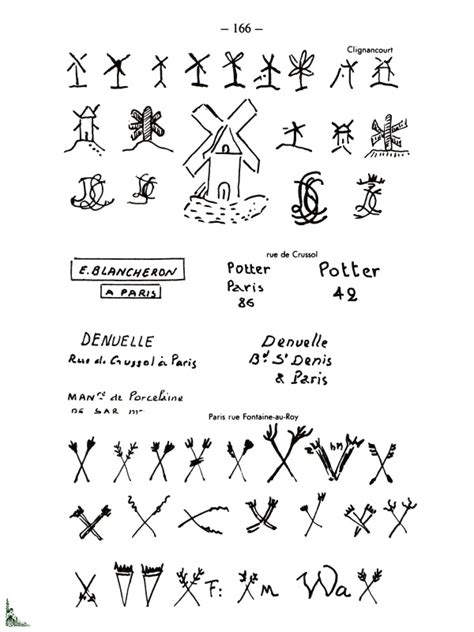 – 166 –
Clignancourt
rue de Crussol
E. BLANCHERON
A PARIS
Potter
Paris
86
Potter
42
DENUELLE
Rue de Crussol à Paris
MAN^re de Porcelaine
DE SAR
Denuelle
B^d S^t Denis
à Paris
Paris rue Fontaine-au-Roy
F:
M